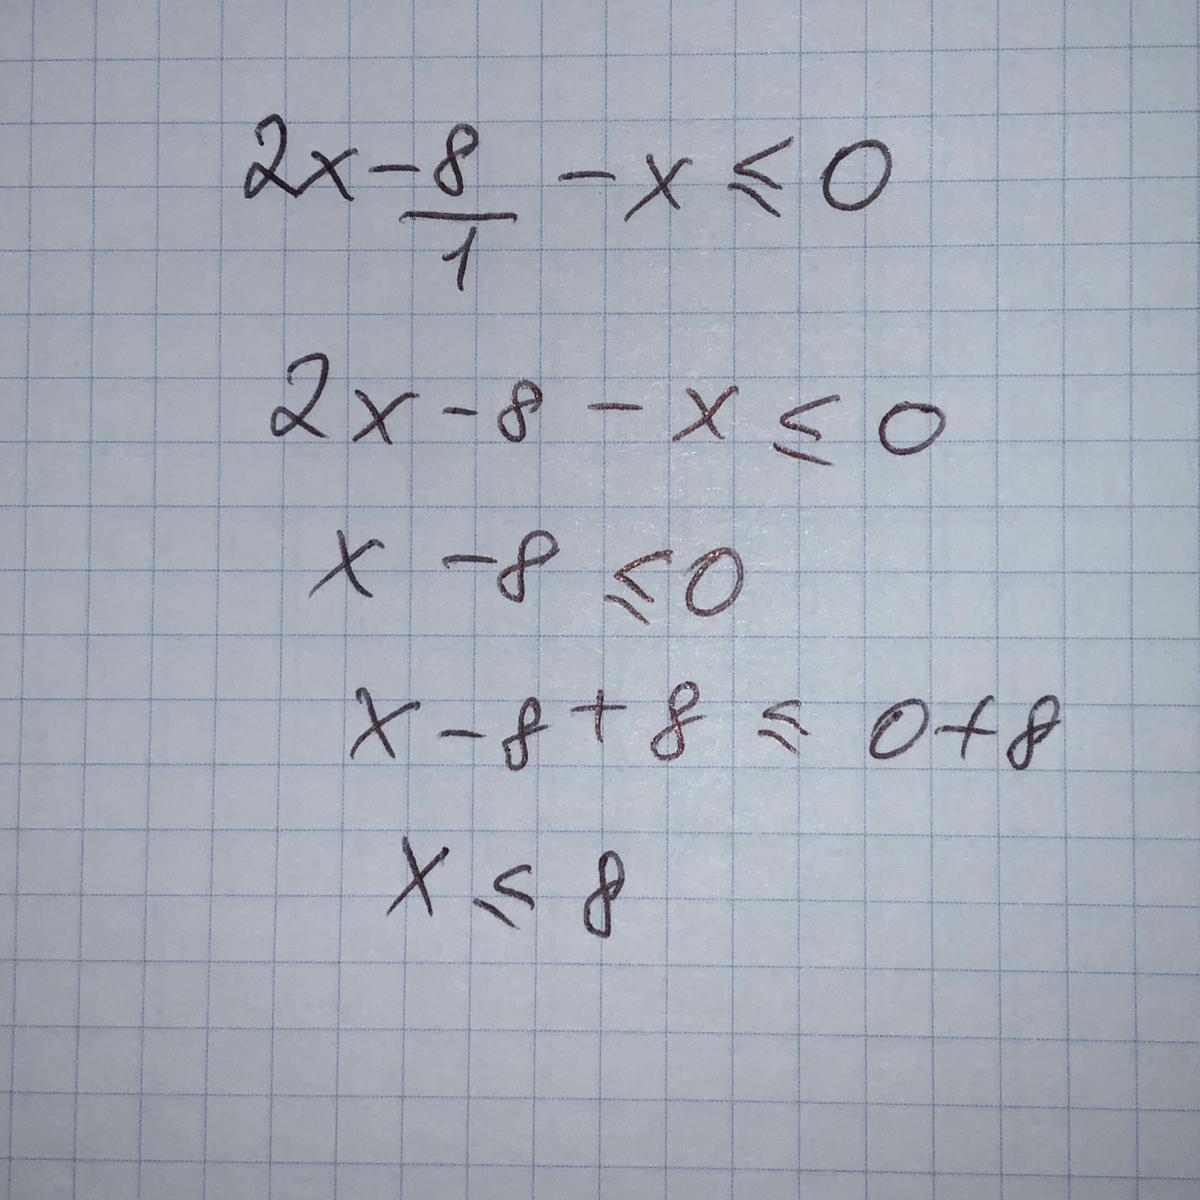 2x - 8/1 - x ≤ 0
2x - 8 - x ≤ 0
x - 8 ≤ 0
x - 8 + 8 ≤ 0 + 8
x ≤ 8